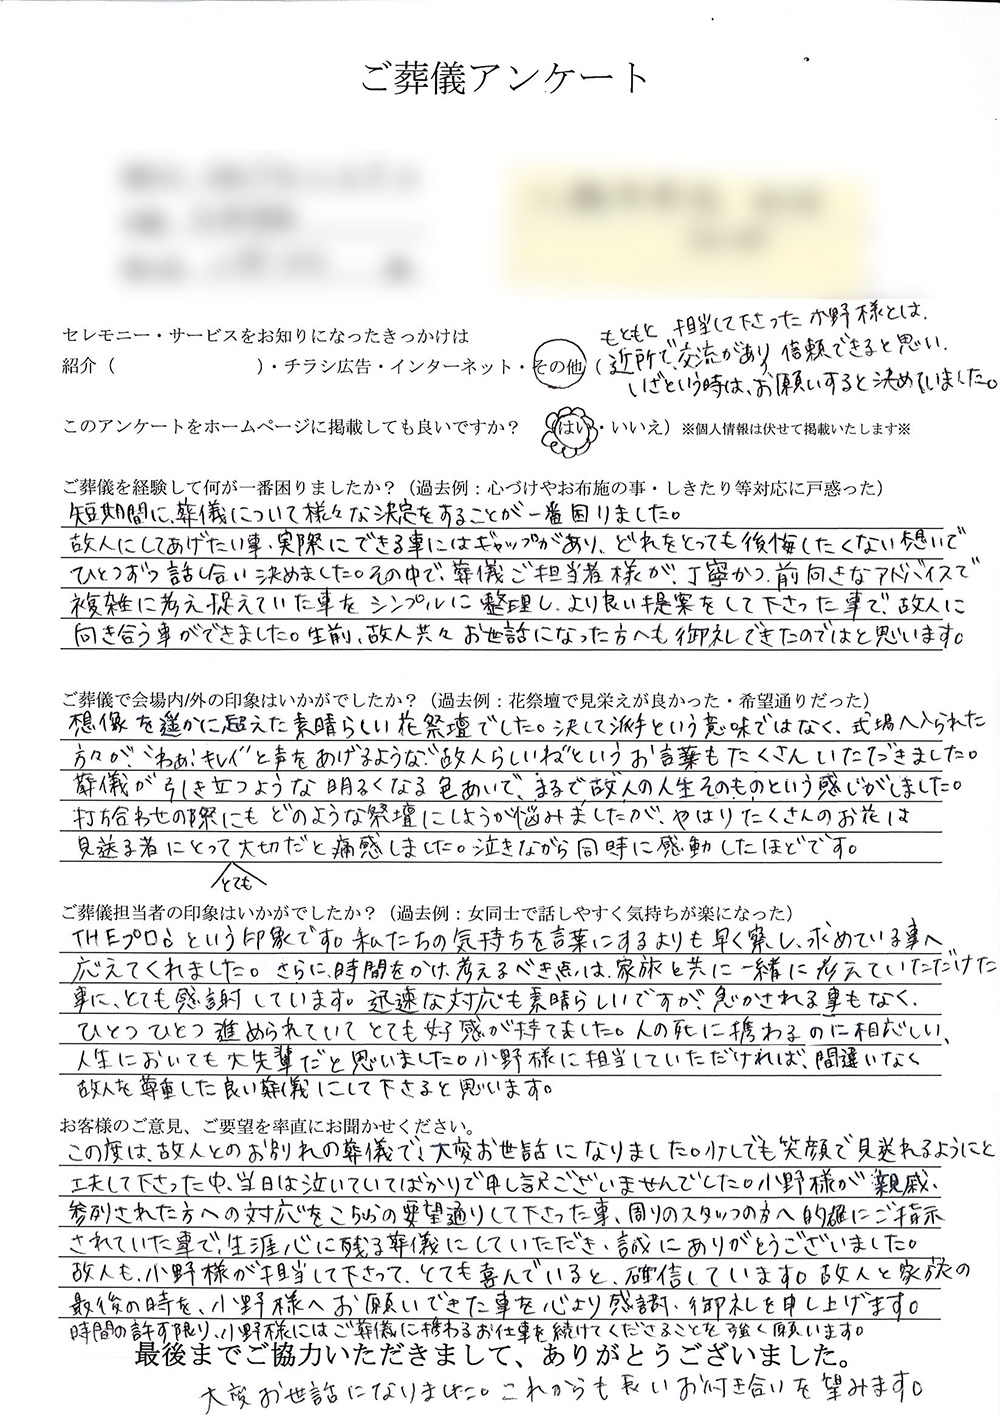 ご葬儀アンケート
セレモニー・サービスをお知りになったきっかけは
紹介（　　　　　　　　　）・チラシ広告・インターネット・その他（
もともと 担当して下さった小野様とは、
近所で、交流があり 信頼できると思い、
いざという時は、お願いすると決めていました。
このアンケートをホームページに掲載しても良いですか？　（はい・いいえ）※個人情報は伏せて掲載いたします※
ご葬儀を経験して何が一番困りましたか？（過去例：心づけやお布施の事・しきたり等対応に戸惑った）
短期間に、葬儀について様々な決定をすることが一番困りました。
故人にしてあげたい事、実際にできる事にはギャップがあり、どれをとっても後悔したくない想いで
ひとつずつ話し合い決めました。その中で、葬儀ご担当者様が、丁寧かつ、前向きなアドバイスで
複雑に考え捉えていた事をシンプルに整理し、より良い提案をして下さった事で、故人に
向き合う事ができました。生前、故人共々お世話になった方へも御礼できたのではと思います。
ご葬儀で会場内/外の印象はいかがでしたか？（過去例：花祭壇で見栄えが良かった・希望通りだった）
想像を遥かに超えた素晴らしい花祭壇でした。決して派手という意味ではなく、式場へ入られた
方々が、“わぁ、キレイ”と声をあげるような、“故人らしいね”というお言葉もたくさんいただきました。
葬儀が引き立つような明るくなる色あいで、まるで故人の人生そのものという感じがしました。
打ち合わせの際にもどのような祭壇にしようか悩みましたが、やはりたくさんのお花は
見送る者にとって大切だと痛感しました。泣きながら同時に感動したほどです。
とても
ご葬儀担当者の印象はいかがでしたか？（過去例：女同士で話しやすく気持ちが楽になった）
THEプロ！という印象です。私たちの気持ちを言葉にするよりも早く察し、求めている事へ
応えてくれました。さらに、時間をかけ、考えるべき点は、家族と共に一緒に考えていただけた
事に、とても感謝しています。迅速な対応も素晴らしいですが、急かされる事もなく、
ひとつひとつ進められていてとても好感が持てました。人の死に携わるのに相応しい、
人生においても大先輩だと思いました。小野様に担当していただければ、間違いなく
故人を尊重した良い葬儀にして下さると思います。
お客様のご意見、ご要望を率直にお聞かせください。
この度は、故人とのお別れの葬儀で、大変お世話になりました。少しでも笑顔で見送れるようにと
工夫して下さった中、当日は泣いていてばかりで申し訳ございませんでした。小野様が親戚、
参列された方への対応をこちらの要望通りして下さった事、周りのスタッフの方へ的確にご指示
されていた事で、生涯心に残る葬儀にしていただき、誠にありがとうございました。
故人も、小野様が担当して下さって、とても喜んでいると、確信しています。故人と家族の
最後の時を、小野様へお願いできた事を心より感謝、御礼を申し上げます。
時間の許す限り、小野様にはご葬儀に携わるお仕事を続けてくださることを強く願います。
最後までご協力いただきまして、ありがとうございました。
大変お世話になりました。これからも長いお付き合いを望みます。